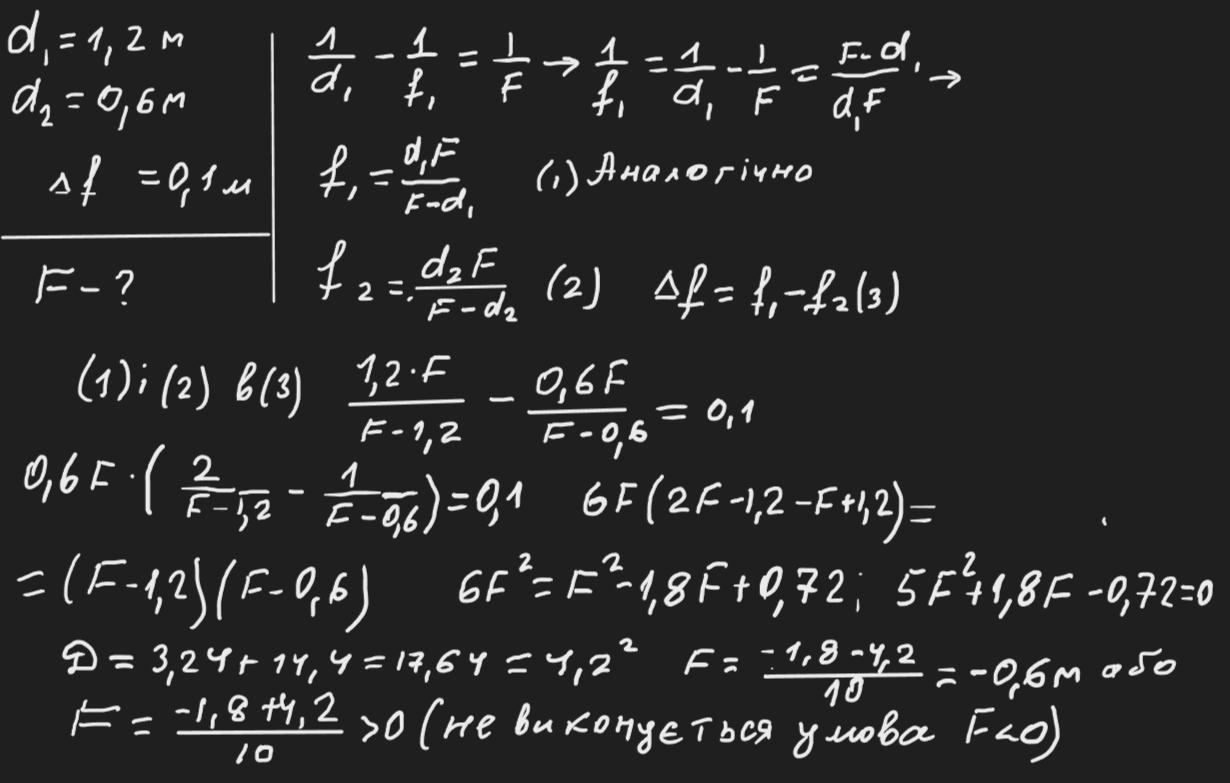 d₁ = 1,2 м
d₂ = 0,6 м
Δf = 0,1 м
F - ?
1/d₁ - 1/f₁ = 1/F → 1/f₁ = 1/d₁ - 1/F = (F-d₁)/(d₁F) →
f₁ = d₁F/(F-d₁) (1) Аналогічно
f₂ = d₂F/(F-d₂) (2) Δf = f₁ - f₂ (3)
(1) і (2) в (3) 1,2·F/(F-1,2) - 0,6F/(F-0,6) = 0,1
0,6F·(2/(F-1,2) - 1/(F-0,6)) = 0,1 6F(2F-1,2-F+1,2) =
= (F-1,2)(F-0,6) 6F² = F² - 1,8F + 0,72; 5F² + 1,8F - 0,72 = 0
D = 3,24 + 14,4 = 17,64 = 4,2² F = (-1,8-4,2)/10 = -0,6 м або
F = (-1,8+4,2)/10 > 0 (не виконується умова F<0)